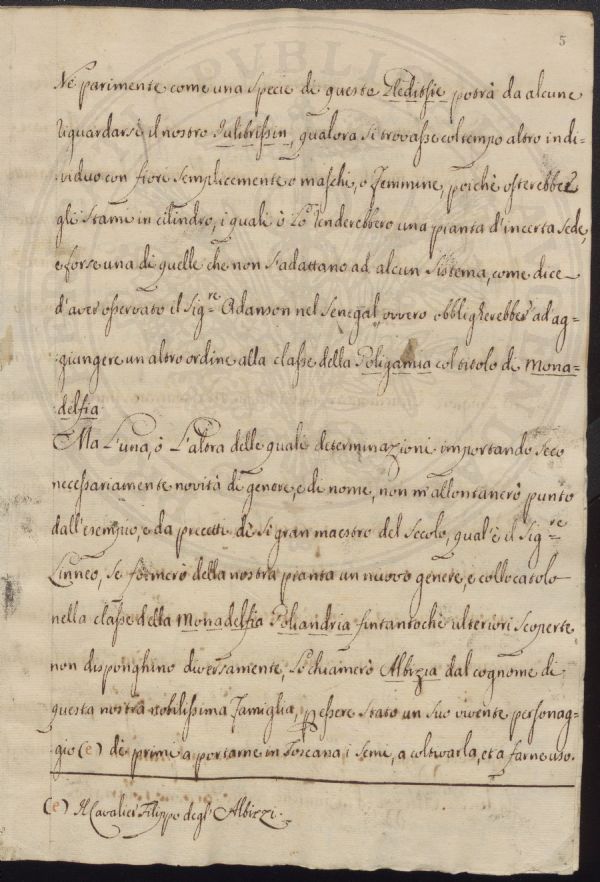 5
PVBLI
Nè parimente come una Specie di queste Gleditsie potrà da alcune
riguardarsi il nostro Iulibrissin, qualora si trovasse col tempo altro indi=
viduo con fiori semplicemente o maschi, o Femmine, poichè osterebber
gli Stami in cilindro, i quali ò lo renderebbero una pianta d'incerta Sede,
e forse una di quelle che non s'adattano ad alcun Sistema, come dice
d'aver osservato il Sig.re Adanson nel Senegal, ovvero obbligherebber ad ag=
giungere un altro ordine alla classe della Poligamia col titolo di Mona=
delfia.
Ma l'una, ò l'altra delle quali determinazioni importando Seco
necessariamente novità di genere, e di nome, non m'allontanerò punto
dall'esempio, e da precetti di sì gran maestro del Secolo, qual'è il Sig.re
Linneo, se formerò della nostra pianta un nuovo genere, e collocatolo
nella classe della Monadelfia Poliandria fintantochè ulteriori Scoperte
non disponghino diversamente, lo chiamerò Albizia dal cognome di
questa nostra nobilissima Famiglia, p essere stato un suo vivente personag=
gio (e) de primi a portarne in Toscana i semi, a coltivarla, et a farne uso.
(e) Il Cavalier Filippo degl' Albizzi.